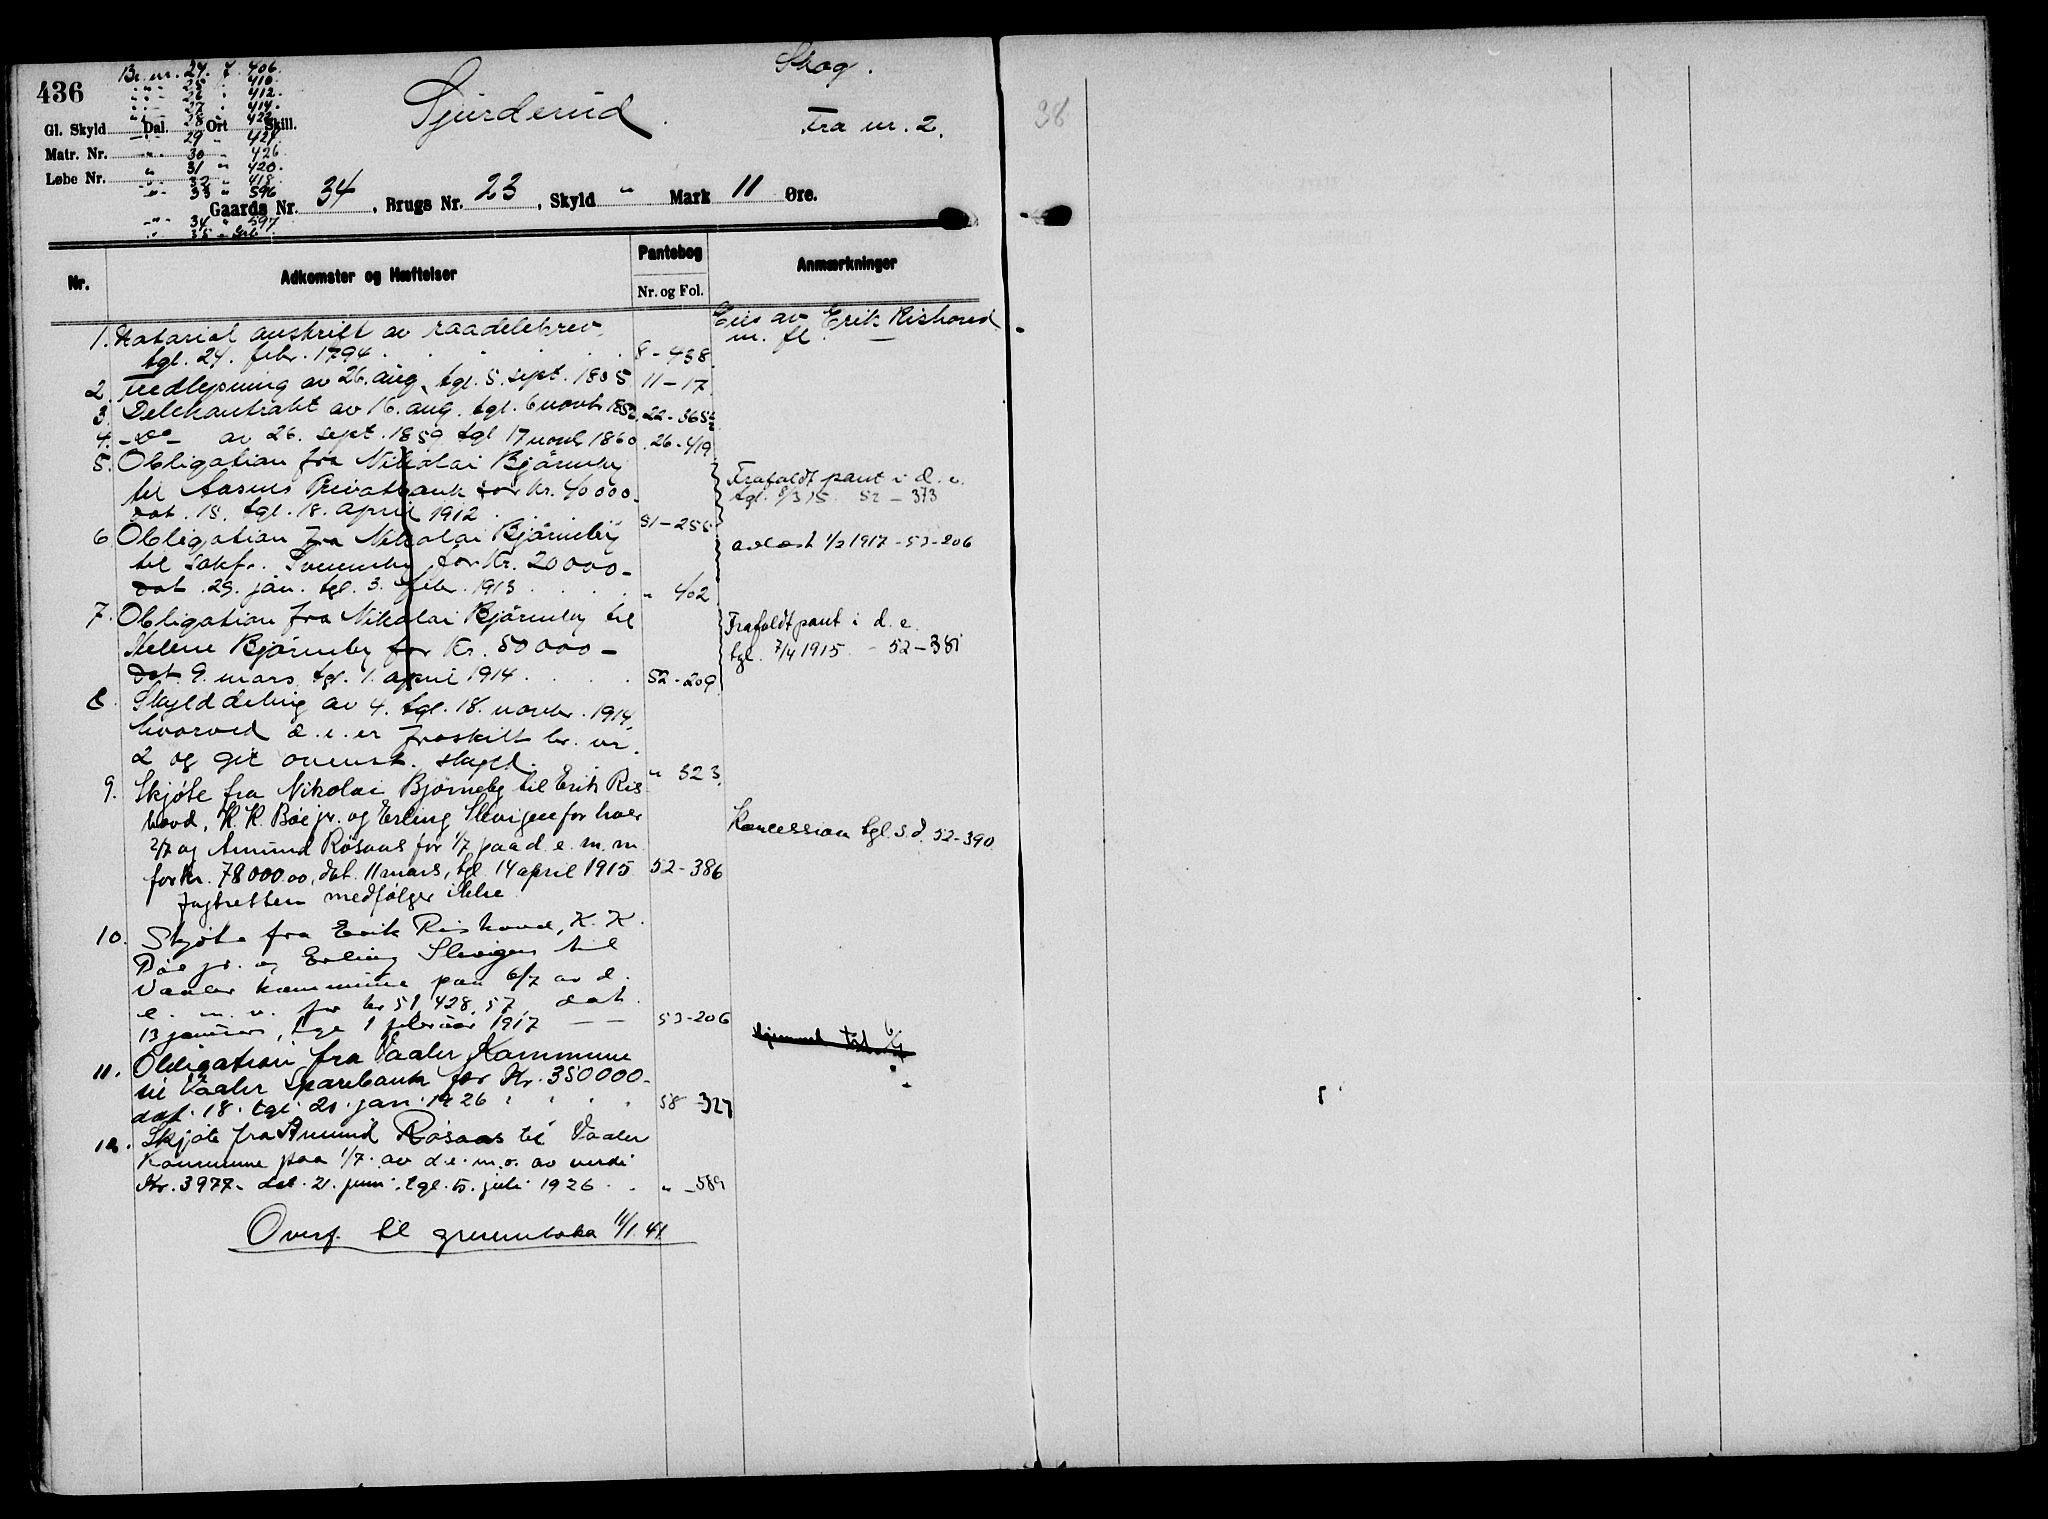 436
Br. nr. 24. f. 406.
" " 25 " 410.
" " 26 " 412.
" " 27 " 414.
" " 28 " 422.
" " 29 " 424.
" " 30 " 426.
" " 31 " 420.
" " 32 " 418.
" " 33 " 596
" " 34 " 597
" " 35 "
Gl. Skyld Dal. Ort Skill.
Matr. Nr.
Løbe Nr.
Sjurderud.
Skog.
Fra nr. 2.
Gaards Nr. 34, Brugs Nr. 23, Skyld " Mark 11 Øre.
Nr.
Adkomster og Hæftelser
Pantebog
Nr. og Fol.
Anmærkninger
Eies av Erik Rishovd
m. fl.
1. Notarial avskrift av raadelsbrev
tgl. 24. febr. 1794. 8-438
2. Fredlysning av 26. aug. tgl. 5. sept. 1805 11-17
3. Delekontrakt av 16. aug. tgl. 6 novbr 1850. 22-365
4. -do- av 26. sept. 1859 tgl 17 novbr 1860 26-419
5. Obligation fra Nikolai Bjørneby
til Aasnes Privatbank for kr. 40000-
dat. 15. tgl. 18. april 1912 51-255
Frafaldt pant i d. e.
tgl. 8/3 15. 52-373
6 Obligation fra Nikolai Bjørneby
til sakf. for Kr. 20000-
dat. 29. jan. tgl. 3. febr. 1913 " 402
avlæst 1/2 1917 - 53-206
7. Obligation fra Nikolai Bjørneby til
Helene Bjørneby for Kr. 50000-
dat. 9. mars tgl. 1. april 1914 52-209
Frafaldt pant i d. e.
tgl. 7/4 1915 - 52-381
8. Skylddeling av 4. tgl. 18. novbr. 1914,
hvorved d. e. er fraskilt br. nr.
2 og git ovenst. skyld. " 323
9. Skjøte fra Nikolai Bjørneby til Erik Ris
hovd, K. K. Bøe jr. og Erling Slevigen for hver
2/7 og Amund Røsaas for 1/7 paa d. e. m. m.
for kr. 78000.00, dat. 11 mars, tgl 14 april 1915 52-386
Jagtretten medfølger ikke.
Koncession tgl. s. d. 52-390
10. Skjøte fra Erik Rishovd, K. K.
Bøe jr. og Erling Slevigen til
Vaaler kommune paa 6/7 av d.
e. m. v. for kr 51,428,57, dat.
13 januar, tgl 1 februar 1917 53-206
Hjemmel til 6/7
11. Obligation fra Vaaler Kommune
til Vaaler Sparebank for Kr. 350000-
dat. 18. tgl. 20. jan. 1926 58-327
12. Skjøte fra Amund Røsaas til Vaaler
Kommune paa 1/7 av d. e. m. o. av verdi
Kr. 3977- dat. 21. juni. tgl. 5. juli 1926 " -589
Overf. til grunnboka 11/1.41
38